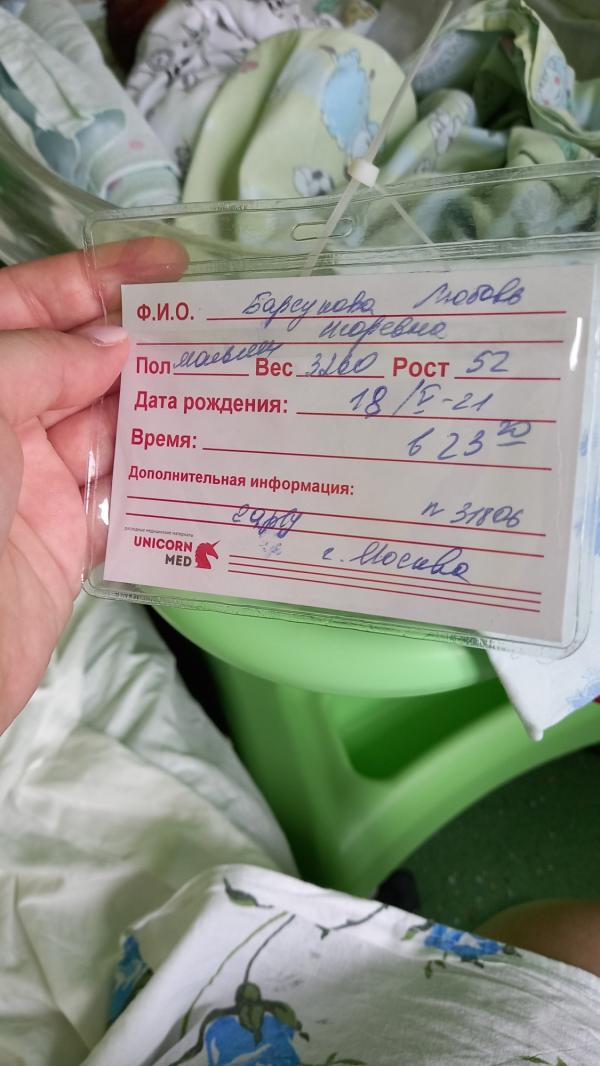 Ф.И.О. Барсукова Любовь
Игоревна
Пол мальчик Вес 3260 Рост 52
Дата рождения: 18/V-21
Время: в 23 20
Дополнительная информация:
n 31806
UNICORN
MED
г. Москва